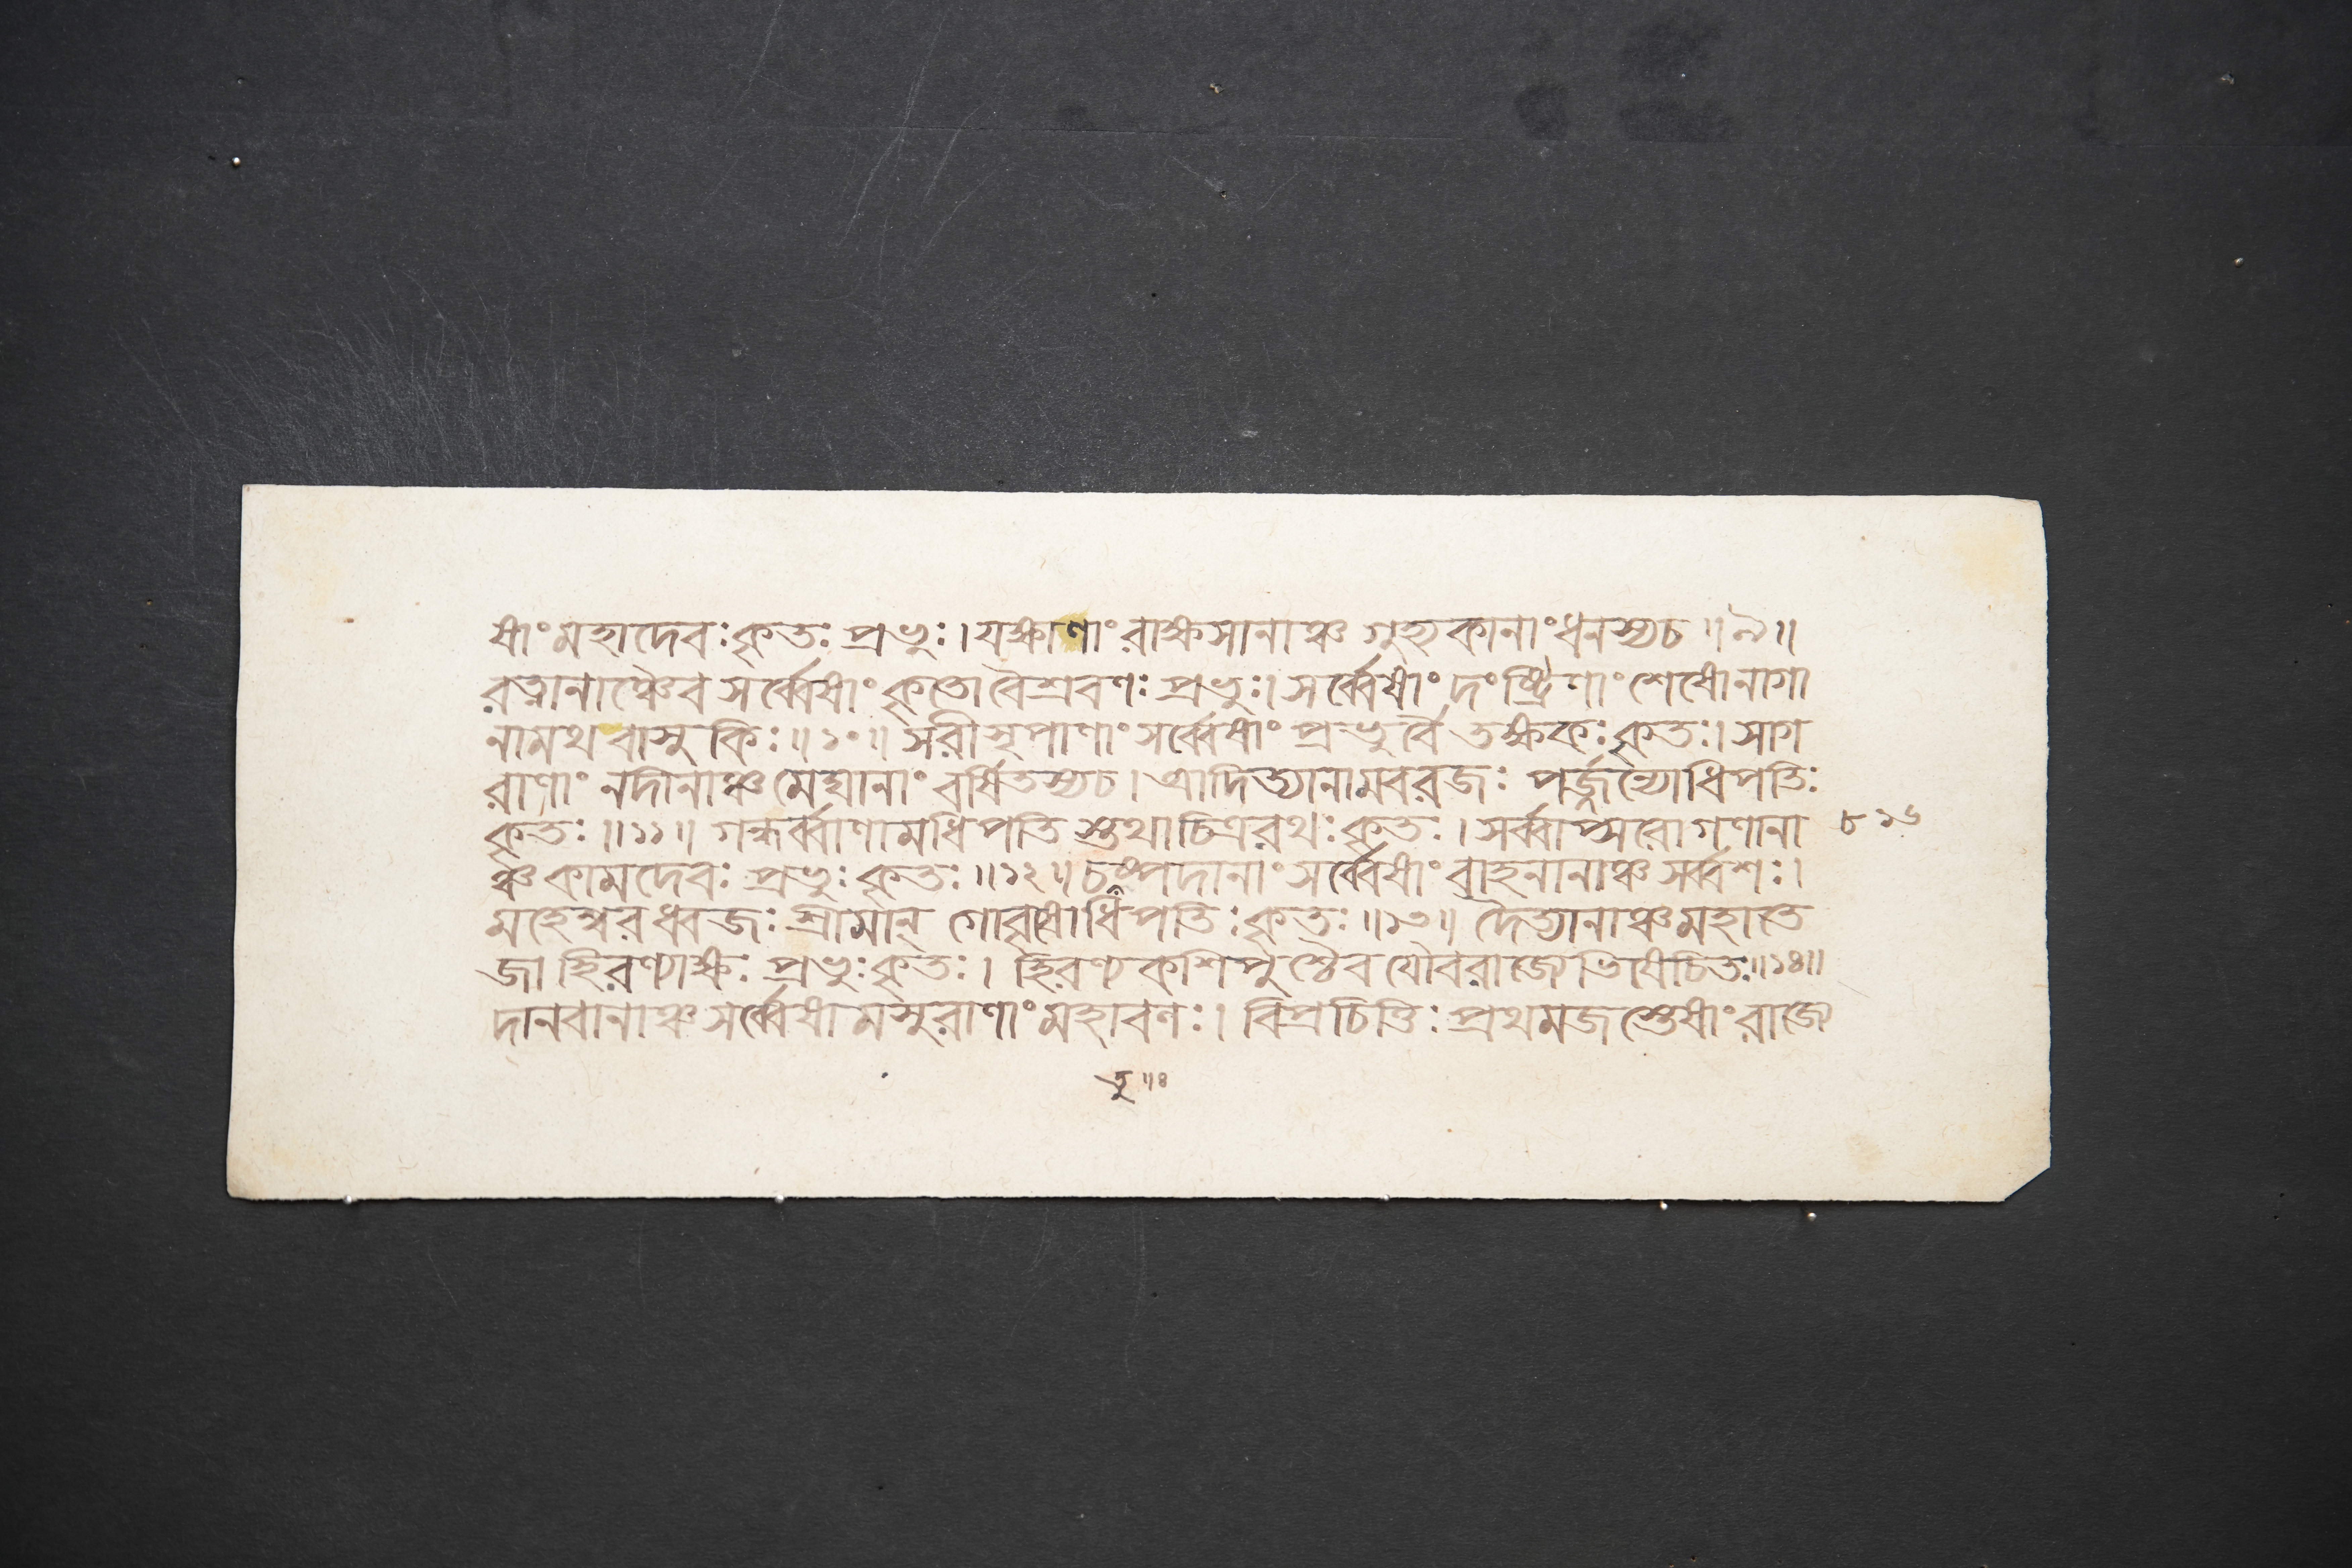 ষাং মহাদেবঃ কৃতঃ প্রভুঃ। যক্ষাণাং রাক্ষসানাঞ্চ গুহ্যকানাং ধনস্য চ॥৯॥
রত্নানাঞ্চৈব সর্ব্বেষাং কৃতো বৈশ্রবণঃ প্রভুঃ। সর্ব্বেষাং দংষ্ট্রিণাং শেষো নাগা
নামথ বাসুকিঃ॥১০॥ সরীসৃপাণাং সর্ব্বেষাং প্রভুর্বৈ তক্ষকঃ কৃতঃ। সাগ
রাণাং নদীনাঞ্চ মেঘানাং বর্ষিতস্য চ। আদিত্যানামবরজঃ পর্জ্জন্যোধিপতিঃ
কৃতঃ॥১১॥ গন্ধর্ব্বাণামধিপতিস্তথা চিত্ররথঃ কৃতঃ। সর্ব্বাপ্সরোগণানা
ঞ্চ কামদেবঃ প্রভুঃ কৃতঃ॥১২॥ চতুষ্পদানাং সর্ব্বেষাং বাহনানাঞ্চ সর্ব্বশঃ।
৮১৬
মহেশ্বরধ্বজঃ শ্রীমান্ গোবৃষোধিপতিঃ কৃতঃ॥১৩॥ দৈত্যানাঞ্চ মহাতে
জা হিরণ্যাক্ষঃ প্রভুঃ কৃতঃ। হিরণ্যকশিপুশ্চৈব যৌবরাজ্যেভিষেচিতঃ॥১৪॥
দানবানাঞ্চ সর্ব্বেষামসুরাণাং মহাবণঃ। বিপ্রচিত্তিঃ প্রথমজস্তেষাং রাজ্যে
তু॥৪